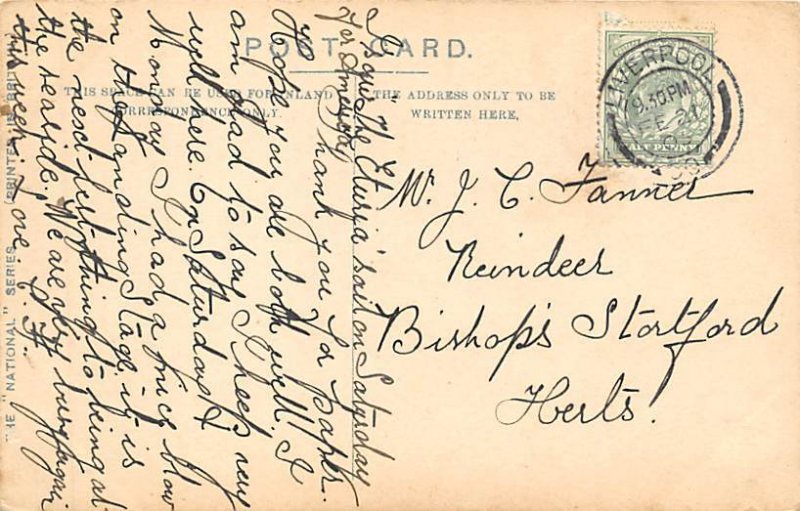 POST CARD.
THIS SPACE CAN BE USED FOR INLAND
CORRESPONDENCE ONLY.
THE ADDRESS ONLY TO BE
WRITTEN HERE.
LIVERPOOL
9.30 PM
FE
HALFPENNY
Mr. J. C. Fanner
Reindeer
Bishop's Stortford
Herts.
I saw the Etruria sail on Saturday
for America
Thank you for paper.
Hope you are both well. I
am glad to say I keep very
well here. On Saturday &
Monday I had a nice blow
on the Landing Stage, it is
the next best thing to being at
the seaside. We are very busy again
this week. Love. C. F.
"NATIONAL" SERIES
PRINTED IN BRIT